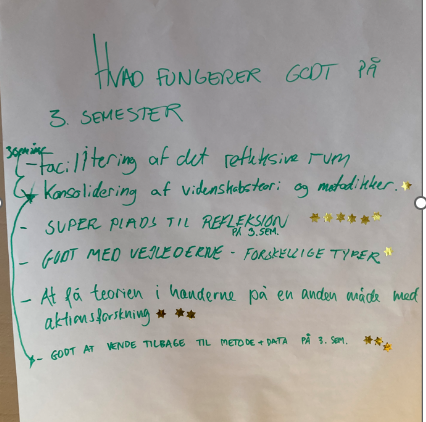 HVAD FUNGERER GODT PÅ
3. SEMESTER
- Facilitering af det refleksive rum
- Konsolidering af videnskabsteori og metodikker.
- SUPER PLADS TIL REFLEKSION
PÅ 3. SEM.
- GODT MED VEJLEDERNE - FORSKELLIGE TYPER
- At få teorien i hænderne på en anden måde med
aktionsforskning
- GODT AT VENDE TILBAGE TIL METODE + DATA PÅ 3. SEM.